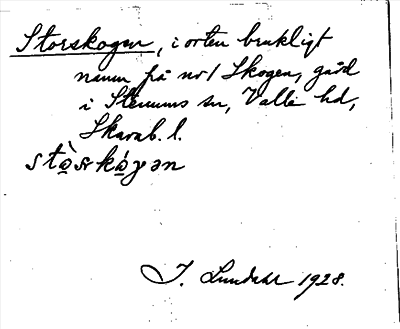 Storskogen, i orten brukligt
namn på nr 1 Skogen, gård
i Stenums sn, Valle hd,
Skarab. l.
stò̠rkó̠gən
I. Lundahl 1928.